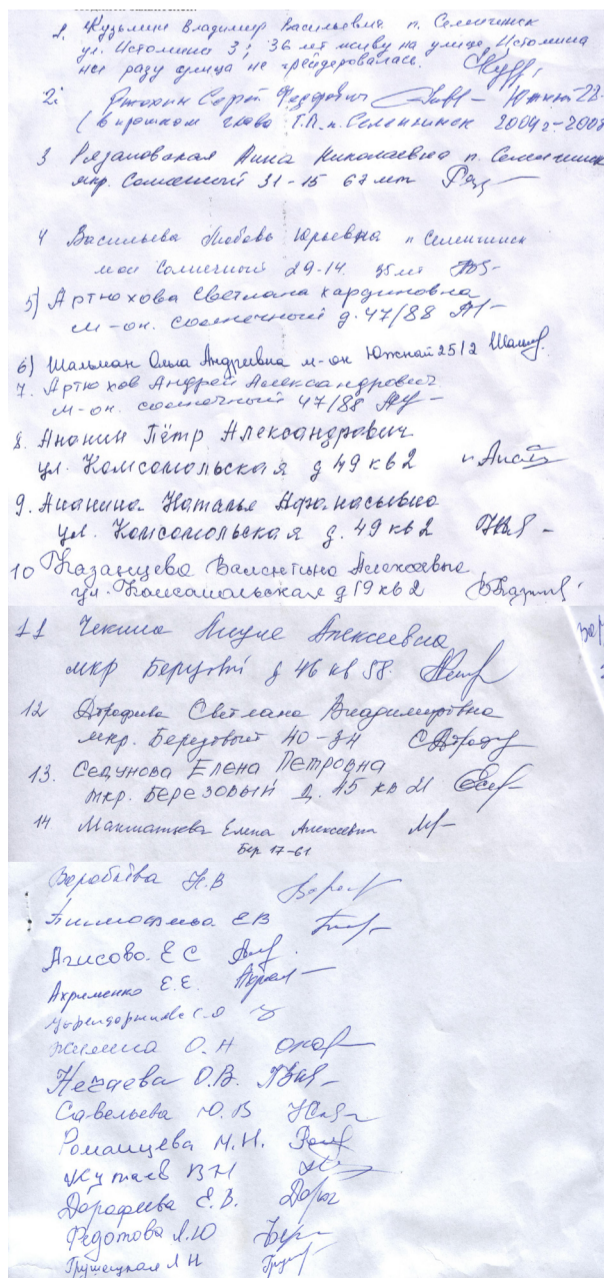 1. Кузьмин Владимир Васильевич п. Селенгинск
ул. Истомина 3; 36 лет живу на улице Истомина
не разу улица не грейдеровалась.
2. Сергей Федорович Южный 28-
(в прошлом глава Г.П. п. Селенгинск 2004г-2008
3 Рязановская Анна Николаевна п. Селенгинск
мкр. Солнечный 31-15 67 лет
4 Васильева Любовь Юрьевна п Селенгинск
мкн Солнечный 29-14. 55 лет
5) Артюхова Светлана
м-он. солнечный д. 47/88
6) Шальман Ольга Андреевна м-он Южный 25/2
7. Артюхов Андрей Александрович
м-он. солнечный 47/88
8. Ананин Пётр Александрович
ул. Комсомольская д 49 кв 2
9. Ананина Наталье Афанасьевна
ул. Комсомольская д. 49 кв 2
10 Казанцева Валентина Алексеевна
ул. Комсомольская д 19 кв 2
11 Алексеевна
мкр Березовый д 46 кв 58.
12 Светлана Владимировна
мкр. Березовый 40-34
13. Седунова Елена Петровна
мкр. Березовый д. 45 кв 21
14 Елена Алексеевна
Бер 17-61
Воробьёва Н.В
Тимофеева Е.В
Агисова Е С
Ахременко Е.Е.
О.Н
Нечаева О.В.
Савельева Ю.В
Романцева М.Н.
В Н
Дорофеева Е.В.
Федотова Л.Ю
Грушецкая Л Н